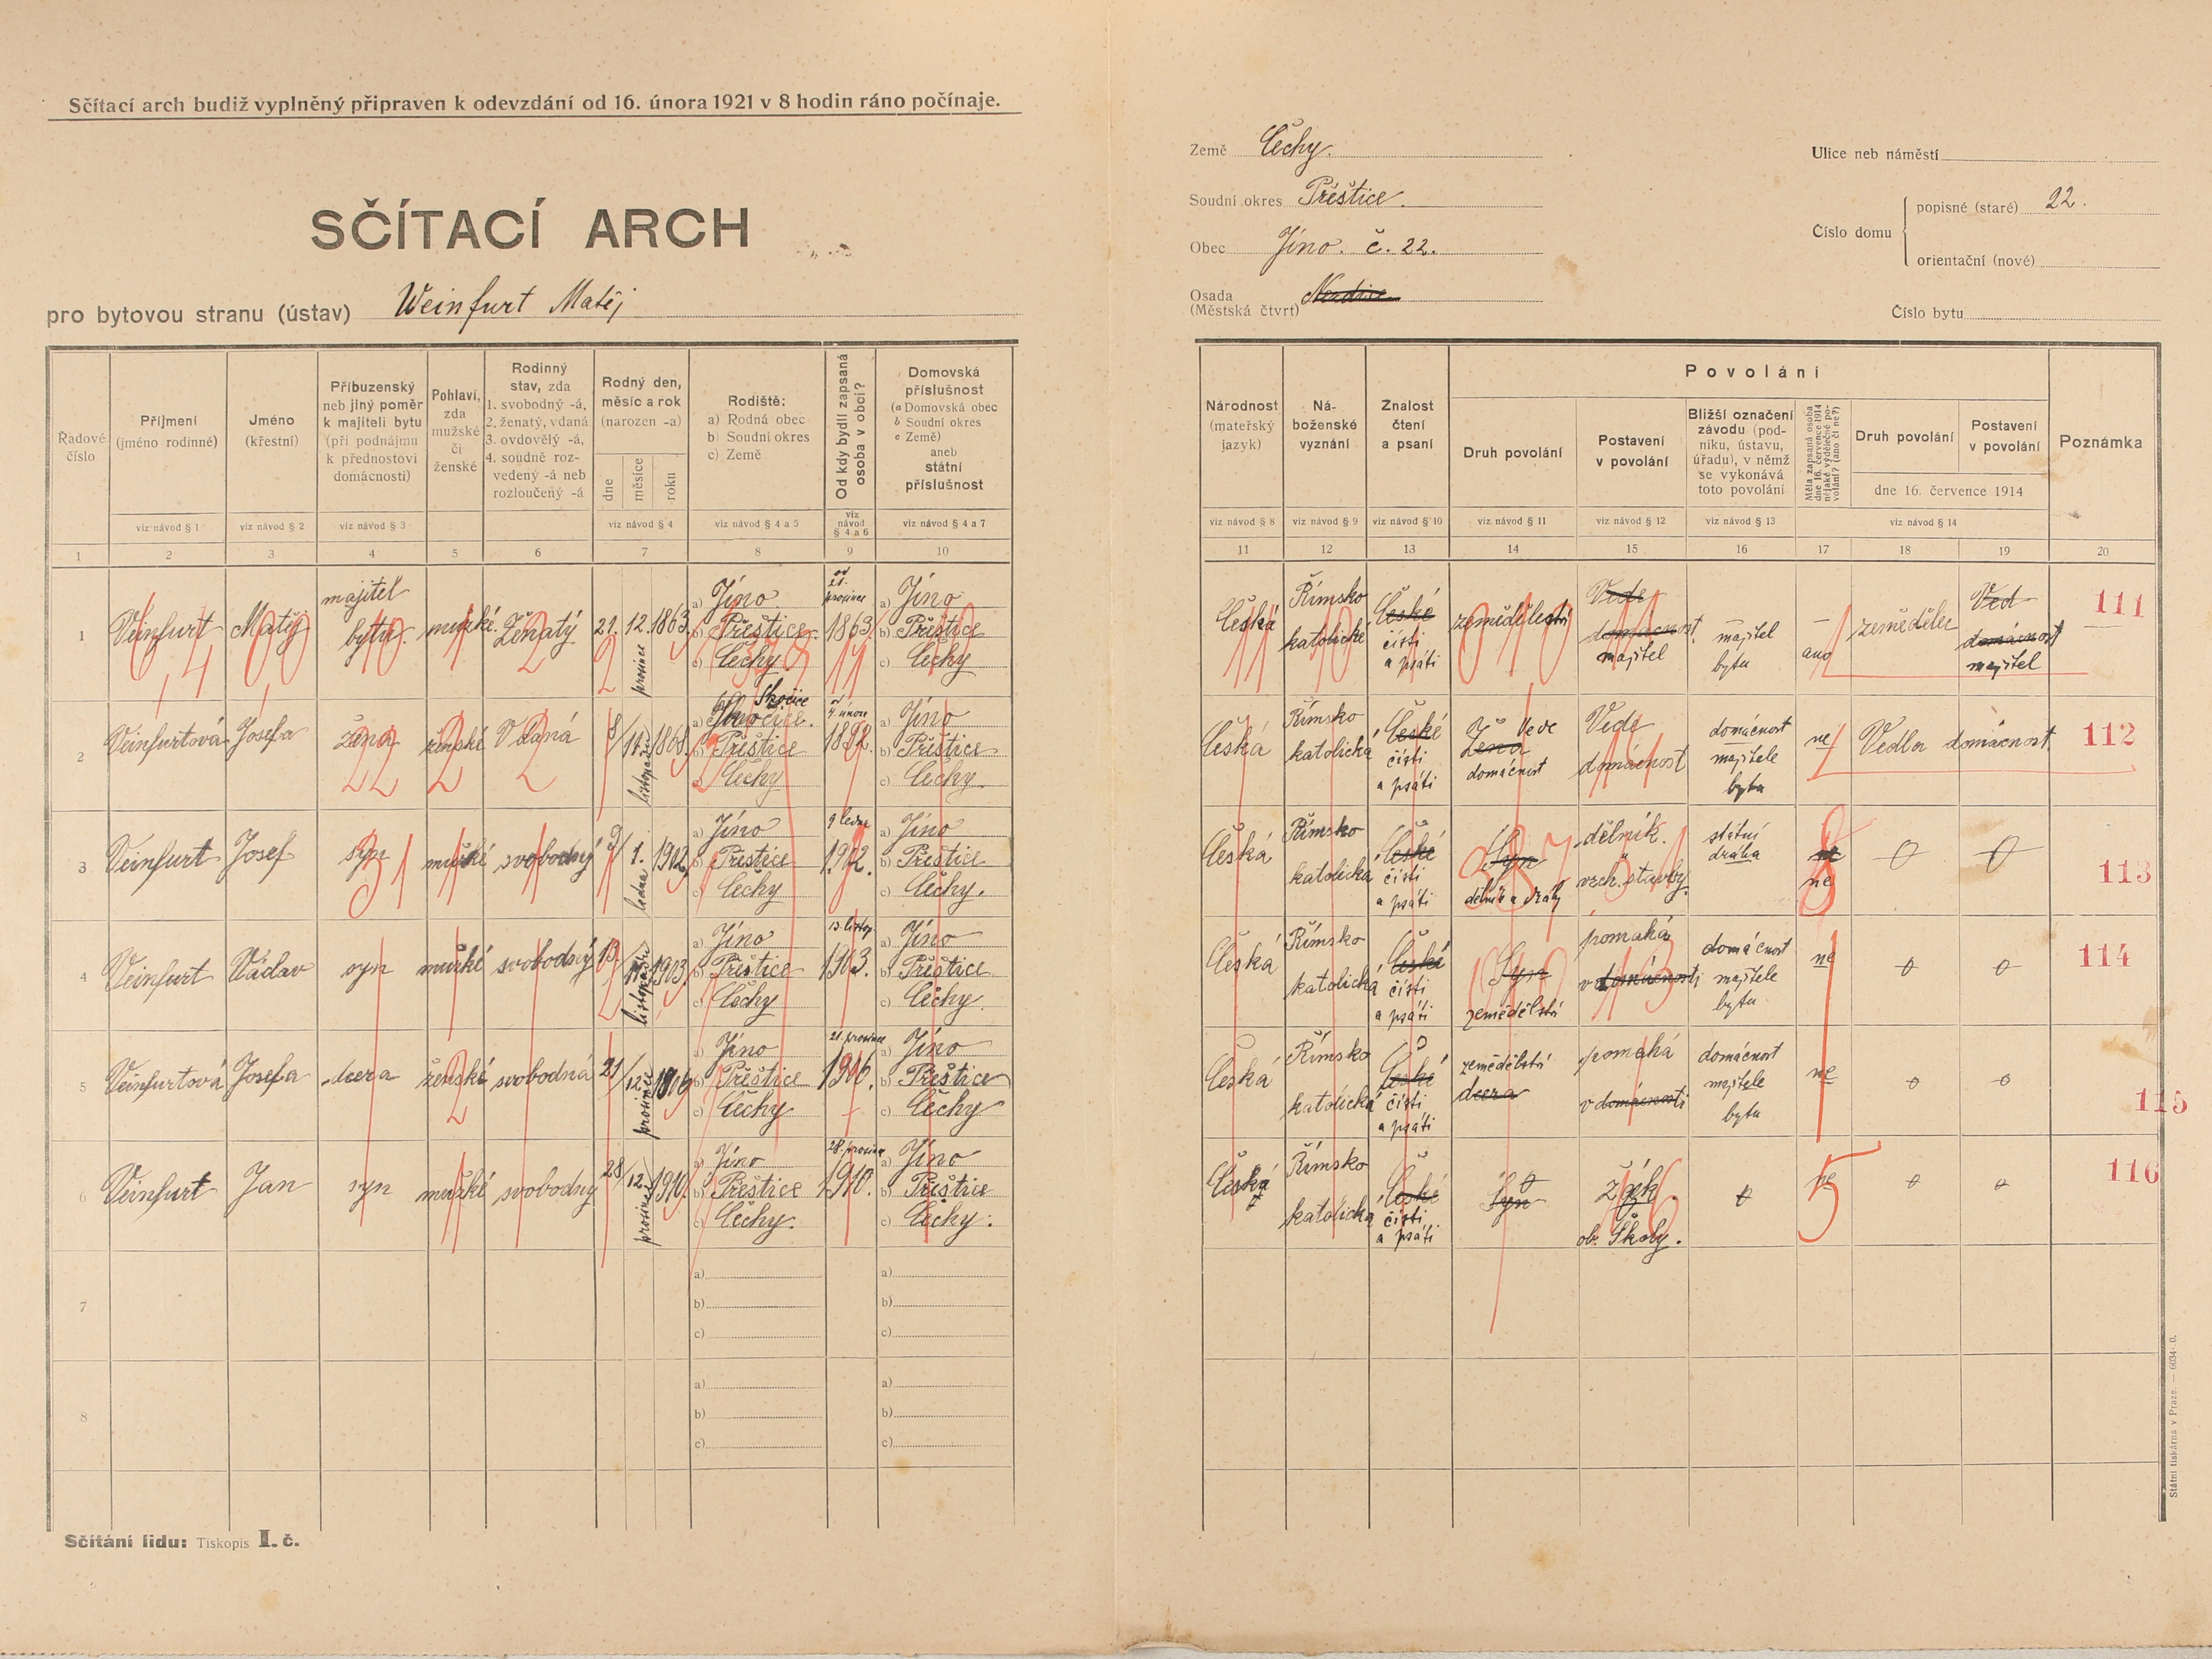 Sčítací arch budiž vyplněný připraven k odevzdání od 16. února 1921 v 8 hodin ráno počínaje.
SČÍTACÍ ARCH
pro bytovou stranu (ústav) Weinfurt Matěj
Země Čechy.
Soudní okres Přeštice.
Obec Jíno. č. 22.
Osada
(Městská čtvrt)
Ulice neb náměstí
Číslo domu
popisné (staré) 22.
orientační (nové)
Číslo bytu
Řadové číslo
Příjmení (jméno rodinné)
Jméno (křestní)
Příbuzenský neb jiný poměr k majiteli bytu (při podnájmu k přednostovi domácnosti)
Pohlaví, zda mužské či ženské
Rodinný stav, zda 1. svobodný -á, 2. ženatý, vdaná 3. ovdovělý -á, 4. soudně rozvedený -á neb rozloučený -á
Rodný den, měsíc a rok (narozen -a)
dne
měsíce
roku
Rodiště:
a) Rodná obec
b) Soudní okres
c) Země
Od kdy bydlí zapsaná osoba v obci?
Domovská příslušnost
(a Domovská obec
b Soudní okres
c Země)
aneb
státní příslušnost
viz návod § 1
viz návod § 2
viz návod § 3
viz návod § 4
viz návod § 4 a 5
viz návod § 4 a 6
viz návod § 4 a 7
1 2 3 4 5 6 7 8 9 10
Národnost (mateřský jazyk)
Náboženské vyznání
Znalost čtení a psaní
Povolání
Druh povolání
Postavení v povolání
Bližší označení závodu (podniku, ústavu, úřadu), v němž se vykonává toto povolání
Měla zapsaná osoba dne 16. července 1914 nějaké výdělečné povolání? (ano či ne?)
Druh povolání
Postavení v povolání
dne 16. července 1914
Poznámka
viz návod § 8
viz návod § 9
viz návod § 10
viz návod § 11
viz návod § 12
viz návod § 13
viz návod § 14
11 12 13 14 15 16 17 18 19 20
1 Veinfurt Matěj majitel bytu. mužské Ženatý 21. 12. prosince 1863 a) Jíno b) Přeštice c) Čechy od 21. prosince 1863. a) Jíno b) Přeštice c) Čechy
Česká Římsko katolické České čísti a psáti zemědělství Vede domácnost. majitel majitel bytu ano zemědělec Ved domácnost majitel 111
2 Veinfurtová Josefa žena ženské Vdaná 8/11. listopadu 1868. a) Skočice b) Přeštice c) Čechy od 4. února 1892. a) Jíno b) Přeštice c) Čechy.
Česká Římsko katolická České čísti a psáti Žena Vede domácnost Vede domácnost domácnost majitele bytu ne Vedla domácnost. 112
3 Veinfurt Josef syn mužské svobodný 9/1. ledna 1902 a) Jíno b) Přeštice c) Čechy 9 ledna 1902. a) Jíno b) Přeštice c) Čechy.
Česká Římsko katolická České čísti a psáti Syn dělník. vrch. stavby. státní dráha ne ne 0 0 113
4 Veinfurt Václav syn mužské svobodný 13. 11. listopadu 1903. a) Jíno b) Přeštice c) Čechy 13 listop. 1903. a) Jíno b) Přeštice c) Čechy.
Česká Římsko katolická České čísti a psáti Syn zemědělství pomahá v domácnosti domácnost majitele bytu ne 0 0 114
5 Veinfurtová Josefa dcera ženské svobodná 21/12. prosince 1906 a) Jíno b) Přeštice c) Čechy 21. prosince 1906. a) Jíno b) Přeštice c) Čechy
Česká Římsko katolická České čísti a psáti zemědělství dcera pomahá v domácnosti domácnost majitele bytu ne 0 0 115
6 Veinfurt Jan syn mužské svobodný 28/12. prosince 1910. a) Jíno b) Přeštice c) Čechy. 28. prosince 1910. a) Jíno b) Přeštice c) Čechy.
Česká Římsko katolická České čísti a psáti Syn 0 žák. ob. Školy. 0 ne 0 0 116
7 a) b) c) a) b) c)
8 a) b) c) a) b) c)
Sčítání lidu: Tiskopis I. č.
Státní tiskárna v Praze. — 6034-0.